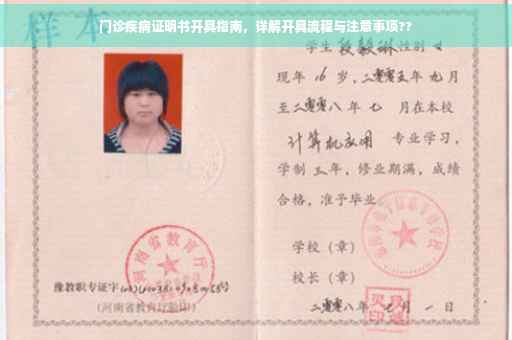 样本
门诊疾病证明书开具指南，详解开具流程与注意事项??
学生 段毅琳 性别 女
现年 16 岁，二零零五年 九月
至二零零八 年 七 月在本校
计算机应用 专业学习，
学制 三 年，修业期满，成绩
合格，准予毕业
学校（章）
校长（章）
豫教职专证字
（河南省教育厅验印）
二零零八年 七 月 一 日
河南省教育厅